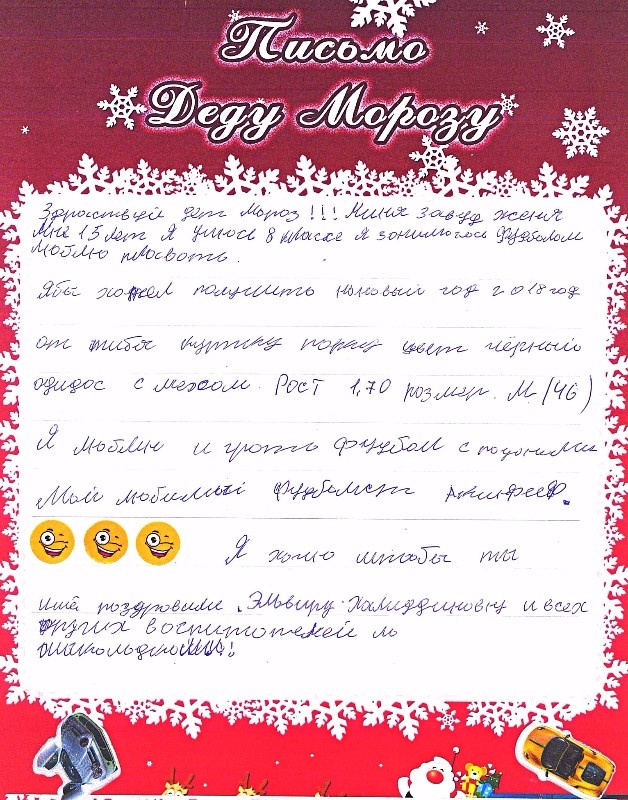 Письмо
Деду Морозу
Здраствуй дет мороз!!! Миня завуд женя
Мне 15 лет я учюсь 8 класе я зонимоюсь Фудболом
люблю плововать.
Ябы хотел получить нановый год 2018 год
от тибя куртку порку цвет чёрный
одидос с мехом. Рост 1,70 розмер. М (46)
Я люблю и уроть фрудбол с поцонами
Мой любимый фудболист Акинфеев.
Я хочю штобы ты
ищё поздровили. Эльвиру Халиддиновну и всех
других воспитотелей